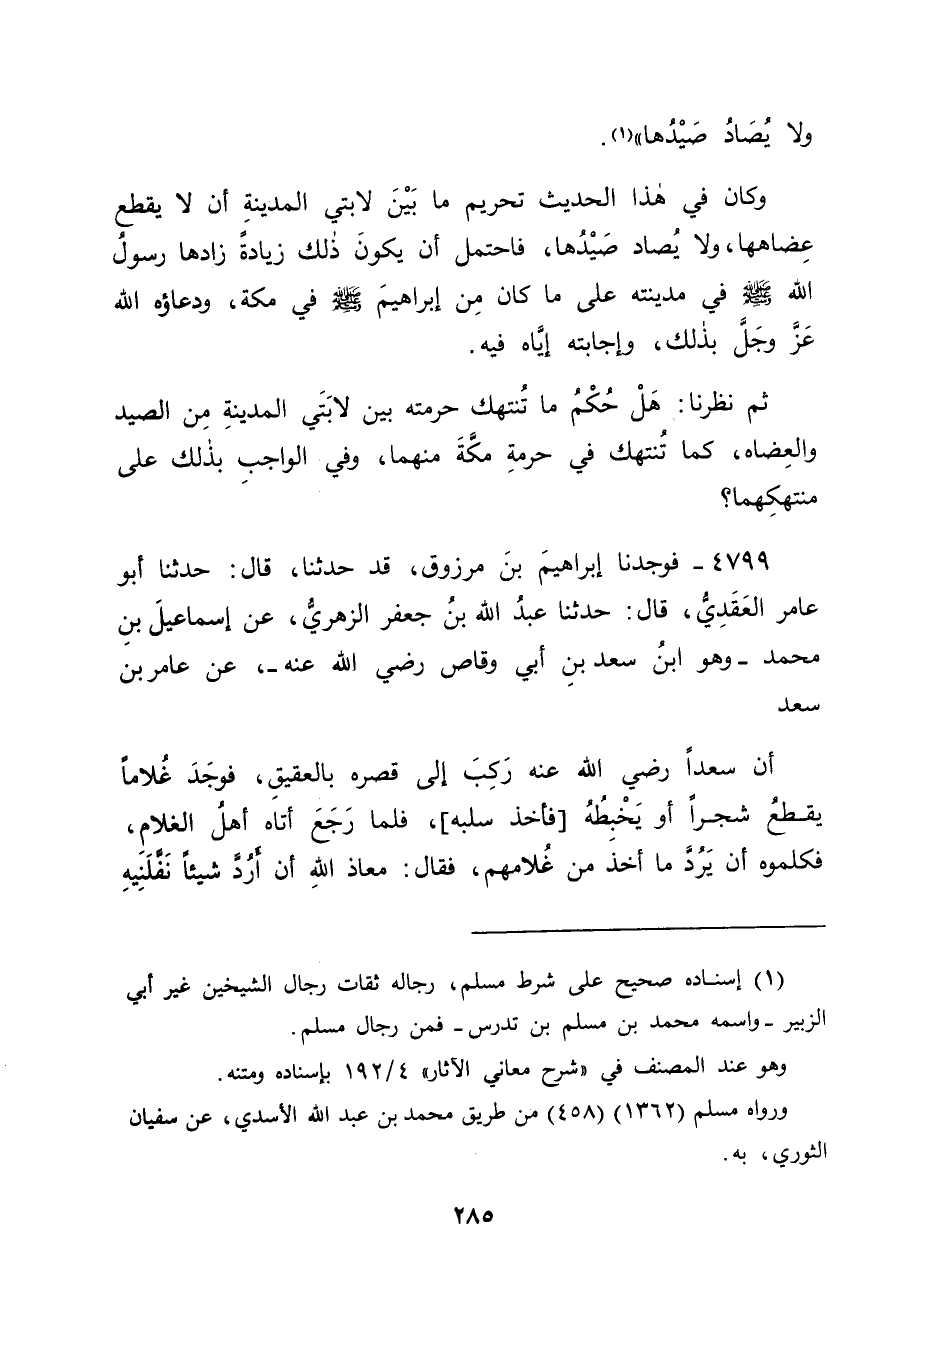 ولا يُصَادُ صَيْدُها»(١).
وكان في هٰذا الحديث تحريم ما بَيْنَ لابتي المدينةِ أن لا يقطع
عِضاهها، ولا يُصاد صَيْدُها، فاحتمل أن يكونَ ذٰلك زيادةً زادها رسولُ
الله ﷺ في مدينته على ما كان مِن إبراهيمَ ﷺ في مكة، ودعاؤه الله
عَزَّ وجَلَّ بذٰلك، وإجابته إيَّاه فيه.
ثم نظرنا: هَلْ حُكْمُ ما تُنتهك حرمته بين لابَتَي المدينةِ مِن الصيد
والعِضاه، كما تُنتهك في حرمةِ مكَّةَ منهما، وفي الواجبِ بذٰلك على
منتهكِهما؟
٤٧٩٩ ـ فوجدنا إبراهيمَ بنَ مرزوق، قد حدثنا، قال: حدثنا أبو
عامر العَقَدِيُّ، قال: حدثنا عبدُ الله بنُ جعفر الزهريُّ، عن إسماعيلَ بنِ
محمد ـ وهو ابنُ سعد بنِ أبي وقاص رضي الله عنه ـ، عن عامر بن
سعد
أن سعداً رضي الله عنه رَكِبَ إلى قصره بالعقيقِ، فوجَدَ غُلاماً
يقـطعُ شجـراً أو يَخْبِطُهُ [فأخذ سلبه]، فلما رَجَعَ أتاه أهلُ الغلام،
فكلموه أن يَرُدَّ ما أخذ من غُلامهم، فقال: معاذ اللهِ أن أَرُدَّ شيئاً نَفَّلَنِيهِ
(١) إسنـاده صحيح على شرط مسلم، رجاله ثقات رجال الشيخين غير أبي
الزبير ـ واسمه محمد بن مسلم بن تدرس ـ فمن رجال مسلم.
وهو عند المصنف في «شرح معاني الآثار» ١٩٢/٤ بإسناده ومتنه.
ورواه مسلم (١٣٦٢) (٤٥٨) من طريق محمد بن عبد الله الأسدي، عن سفيان
الثوري، به.
٢٨٥